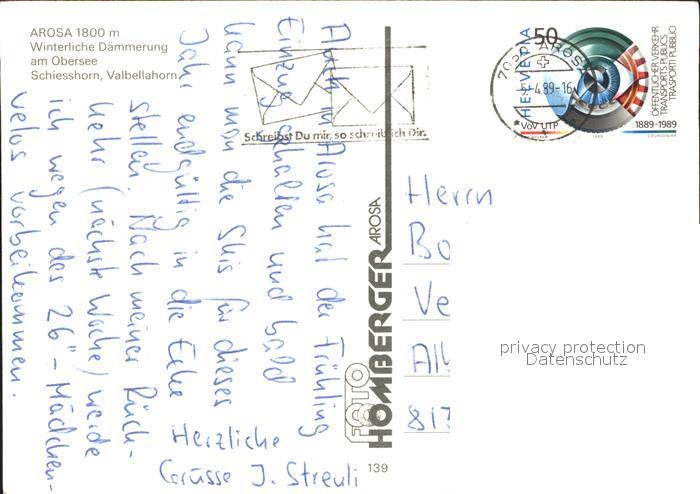 AROSA 1800 m
Winterliche Dämmerung
am Obersee
Schiesshorn, Valbellahorn
Schreibst Du mir, so schreib ich Dir.
AROSA
4.89-16
HELVETIA
50
VöV UTP
ÖFFENTLICHER VERKEHR
TRANSPORTS PUBLICS
TRASPORTI PUBBLICI
1889-1989
1989
Auch in Arosa hat der Frühling
Einzug gehalten und bald
kann man die Skis für dieses
Jahr endgültig in die Ecke
stellen. Nach meiner Rück-
kehr (nächste Woche) werde
ich wegen des 26" - Mädchen-
velos vorbeikommen.
Herzliche
Grüsse J. Streuli
FOTO
HOMBERGER AROSA
139
Herrn
Bo
Ve
817
privacy protection
Datenschutz